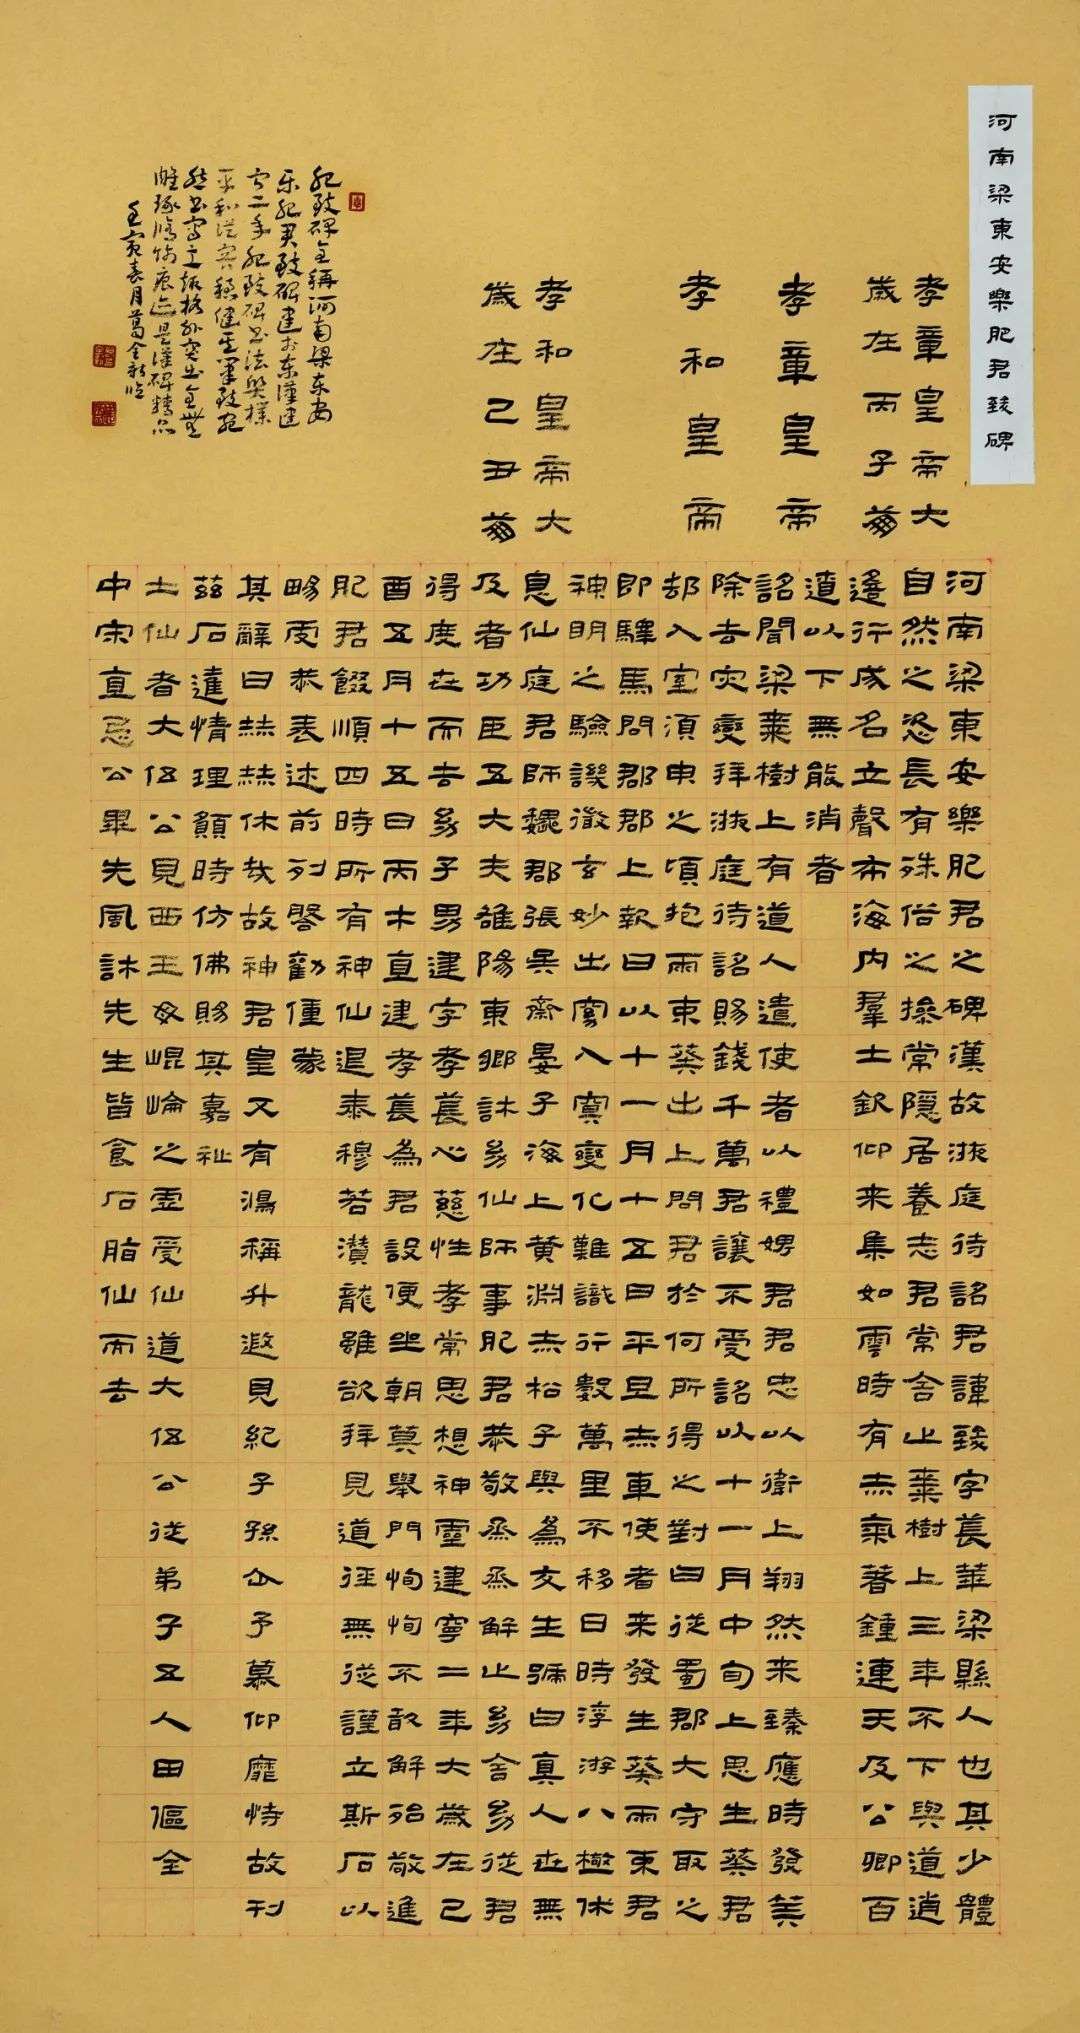 河南梁東安樂肥君致碑
孝章皇帝大
歲在丙子崩
孝章皇帝
孝和皇帝
孝和皇帝大
歲在己丑崩
河南梁東安樂肥君之碑漢故掖庭待詔君諱致字萇華梁縣人也其少體
自然之恣長有殊俗之操常隱居養志君常舍止棗樹上三年不下與道逍
遙行成名立聲布海內羣士欽仰來集如雲時有赤氣著鍾連天及公卿百
遣以下無能消者
詔聞梁棗樹上有道人遣使者以禮娉君君忠以衛上翔然來臻應時發筭
除去災變拜掖庭待詔賜錢千萬君讓不受詔以十一月中旬上思生葵君
却入室須臾之頃抱兩束葵出上問君於何所得之對曰從蜀郡大守取之
即驛馬問郡郡上報曰以十一月十五日平旦赤車使者來發生葵兩束君
神明之驗譏徹玄妙出窈入冥變化難識行數萬里不移日時浮游八極休
息仙庭君師魏郡張吳齋晏子海上黃淵赤松子與為友生號曰真人世無
及者功臣五大夫雒陽東鄉許幼仙師事肥君恭敬烝烝解止幼舍幼從君
得度世而去幼子男建字孝萇心慈性孝常思想神靈建寧二年大歲在己
酉五月十五日丙午直建孝萇為君設便坐朝莫舉門恂恂不敢解殆敬進
肥君餟順四時所有神仙退泰穆若潛龍雖欲拜見道徑無從謹立斯石以
暢虔恭表述前列啓勸僮蒙
其辭曰赫赫休哉故神君皇又有鴻稱升遐見紀子孫企予慕仰靡恃故刊
茲石達情理願時仿佛賜其嘉祉
土仙者大伍公見西王母崐崘之虛受仙道大伍公從弟子五人田傴全
中宋直忌公畢先風許先生皆食石脂仙而去
肥致碑全稱河南梁東安
樂肥君致碑建於東漢建
寧二年肥致碑書法樸
平和從容穩健筆致宛
然書寫之規格外突出全無
雕琢修飾痕迹是漢碑精品
壬寅春月葛金臨